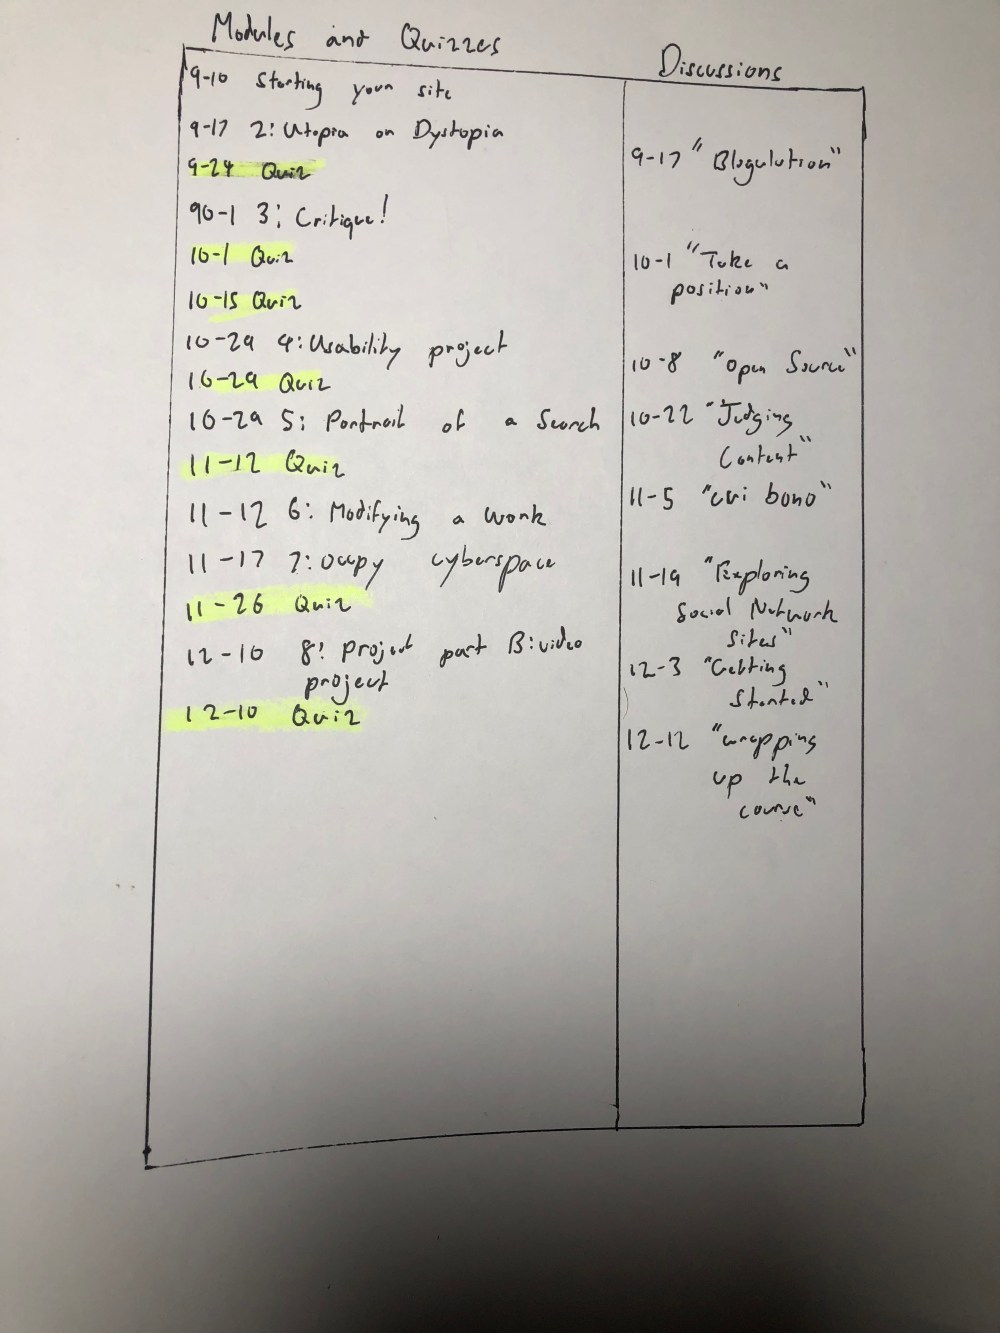 Modules and Quizzes
9-10 Starting your site
9-17 2: Utopia or Dystopia
9-24 Quiz
90-1 3: Critique!
10-1 Quiz
10-15 Quiz
10-29 4: Usability project
10-29 Quiz
10-29 5: Portrait of a Search
11-12 Quiz
11-12 6: Modifying a Work
11-17 7: Occupy cyberspace
11-26 Quiz
12-10 8: Project part B: video
project
12-10 Quiz
Discussions
9-17 "Blogulution"
10-1 "Take a
position"
10-8 "Open Source"
10-22 "Judging
Content"
11-5 "cui bono"
11-19 "Exploring
Social Network
Sites"
12-3 "Getting
Started"
12-12 "wrapping
up the
course"